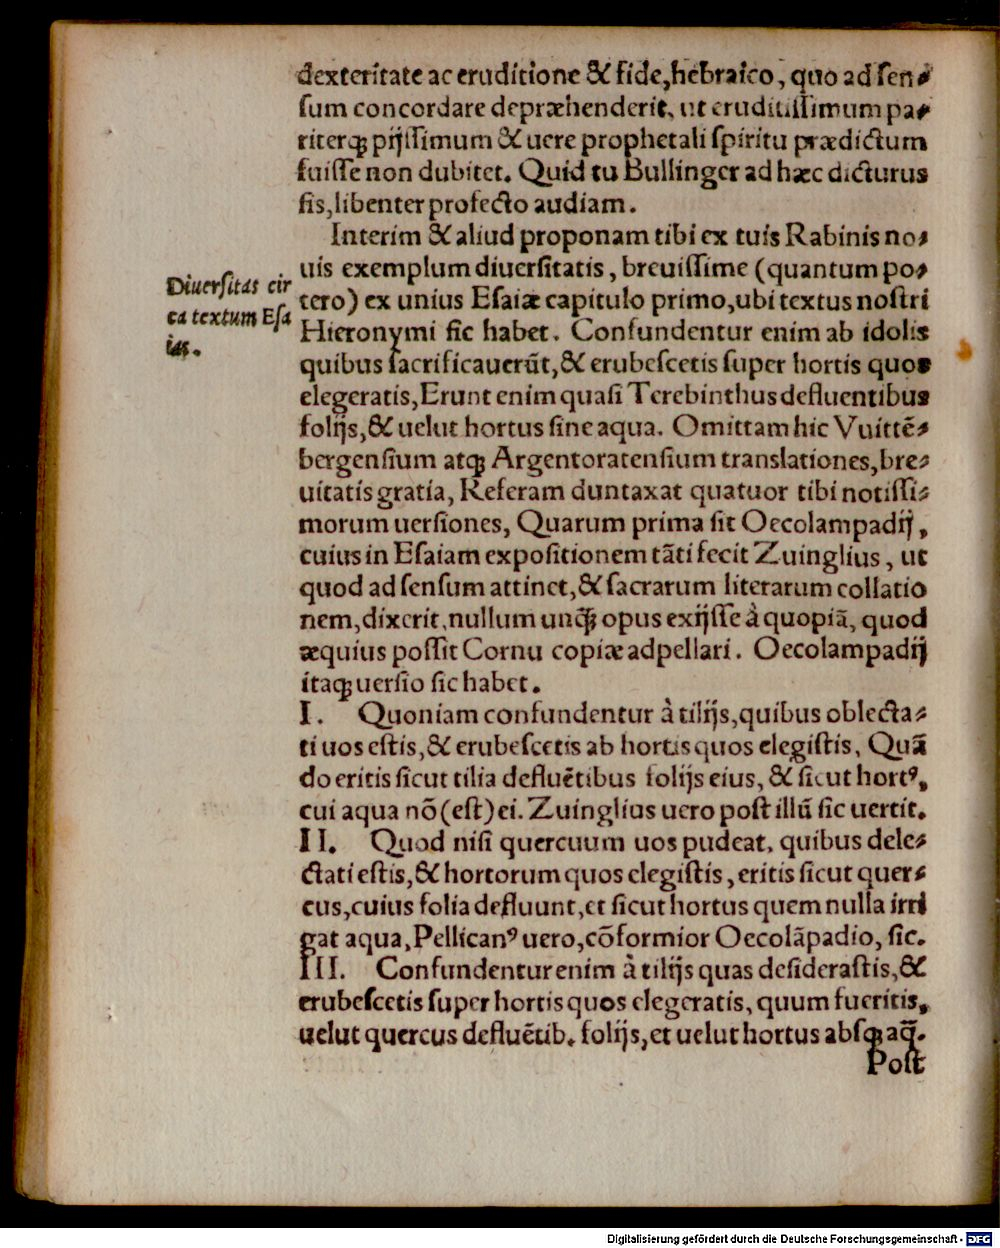 dexteritate ac eruditione & fide, hebraico, quo ad sen-
sum concordare depræhenderit, ut eruditissimum pa-
riterq́ꝫ pijssimum & uere prophetali spiritu prædictum
fuisse non dubitet. Quid tu Bullinger ad hæc dicturus
sis, libenter profecto audiam.
Interim & aliud proponam tibi ex tuis Rabinis no-
uis exemplum diuersitatis, breuissime (quantum po-
tero) ex unius Esaiæ capitulo primo, ubi textus nostri
Hieronymi sic habet. Confundentur enim ab idolis
quibus sacrificauerūt, & erubescetis super hortis quos
elegeratis, Erunt enim quasi Terebinthus defluentibus
folijs, & uelut hortus sine aqua. Omittam hic Vuittē-
bergensium atqꝫ Argentoratensium translationes, bre-
uitatis gratia, Referam duntaxat quatuor tibi notissi-
morum uersiones, Quarum prima sit Oecolampadij,
cuius in Esaiam expositionem tāti fecit Zuinglius, ut
quod ad sensum attinet, & sacrarum literarum collatio
nem, dixerit, nullum unq̄ꝫ opus exijsse à quopiā, quod
æquius possit Cornu copiæ adpellari. Oecolampadij
itaqꝫ uersio sic habet.
I. Quoniam confundentur à tilijs, quibus oblecta-
ti uos estis, & erubescetis ab hortis quos elegistis, Quā
do eritis sicut tilia defluētibus folijs eius, & sicut hortꝰ,
cui aqua nō (est) ei. Zuinglius uero post illū sic uertit.
II. Quod nisi quercuum uos pudeat, quibus dele-
ctati estis, & hortorum quos elegistis, eritis sicut quer-
cus, cuius folia defluunt, et sicut hortus quem nulla irri
gat aqua, Pellicanꝰ uero, cōformior Oecolāpadio, sic.
III. Confundentur enim à tilijs quas desiderastis, &
erubescetis super hortis quos elegeratis, quum fueritis,
uelut quercus defluētib. folijs, et uelut hortus absqꝫ aq̄.
Post
Diuersitas cir
ca textum Esa
ias.
Digitalisierung gefördert durch die Deutsche Forschungsgemeinschaft - DFG